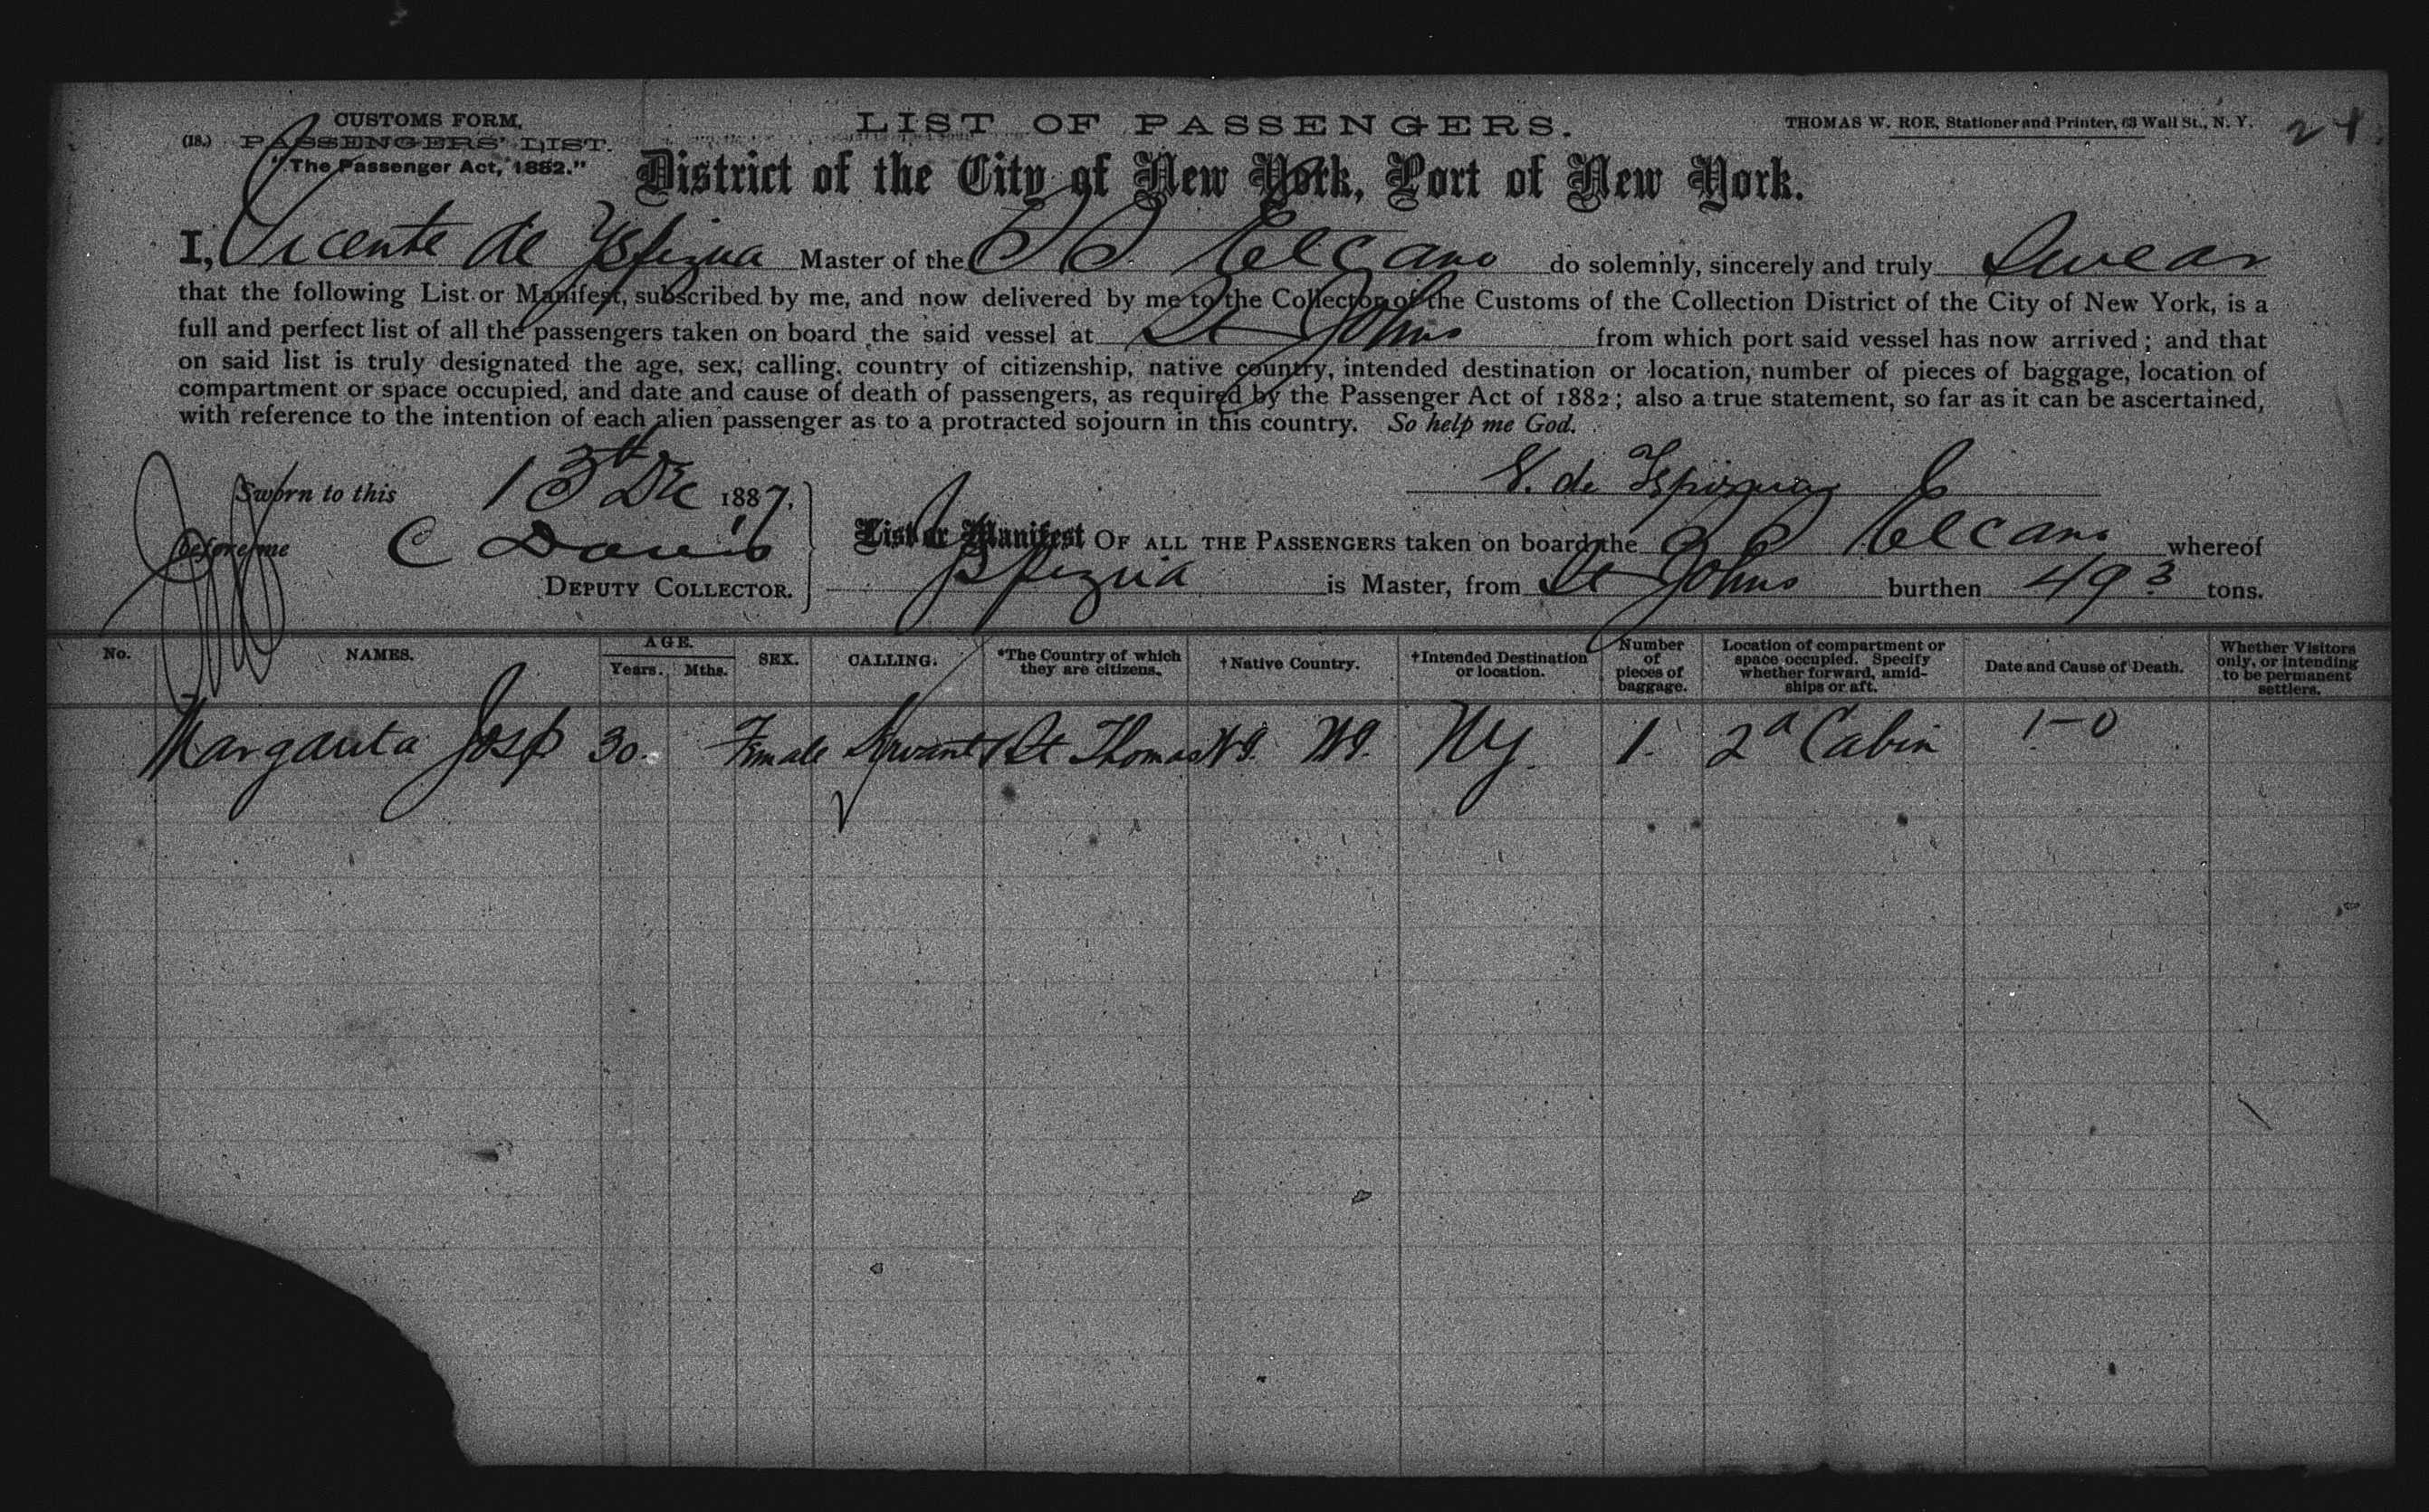 CUSTOMS FORM,
(18.) PASSENGERS' LIST.
"The Passenger Act, 1882."
LIST OF PASSENGERS.
THOMAS W. ROE, Stationer and Printer, 63 Wall St., N. Y.
District of the City of New York, Port of New York.
I, Vicente de Master of the SS Elcano do solemnly, sincerely and truly Swear
that the following List or Manifest, subscribed by me, and now delivered by me to the Collector of the Customs of the Collection District of the City of New York, is a
full and perfect list of all the passengers taken on board the said vessel at St Johns from which port said vessel has now arrived; and that
on said list is truly designated the age, sex, calling, country of citizenship, native country, intended destination or location, number of pieces of baggage, location of
compartment or space occupied, and date and cause of death of passengers, as required by the Passenger Act of 1882; also a true statement, so far as it can be ascertained,
with reference to the intention of each alien passenger as to a protracted sojourn in this country. So help me God.
V. de
Sworn to this 13th Dec 1887,
before me C Davis
DEPUTY COLLECTOR.
List or Manifest OF ALL THE PASSENGERS taken on board the SS Elcano whereof
is Master, from St Johns burthen 493 tons.
No. NAMES. AGE. Years. Mths. SEX. CALLING. *The Country of which they are citizens. †Native Country. †Intended Destination or location. Number of pieces of baggage. Location of compartment or space occupied. Specify whether forward, amidships or aft. Date and Cause of Death. Whether Visitors only, or intending to be permanent settlers.
Margarita Josp 30. Female Servant St Thomas W I. W I. NY. 1. 2a Cabin 1-0